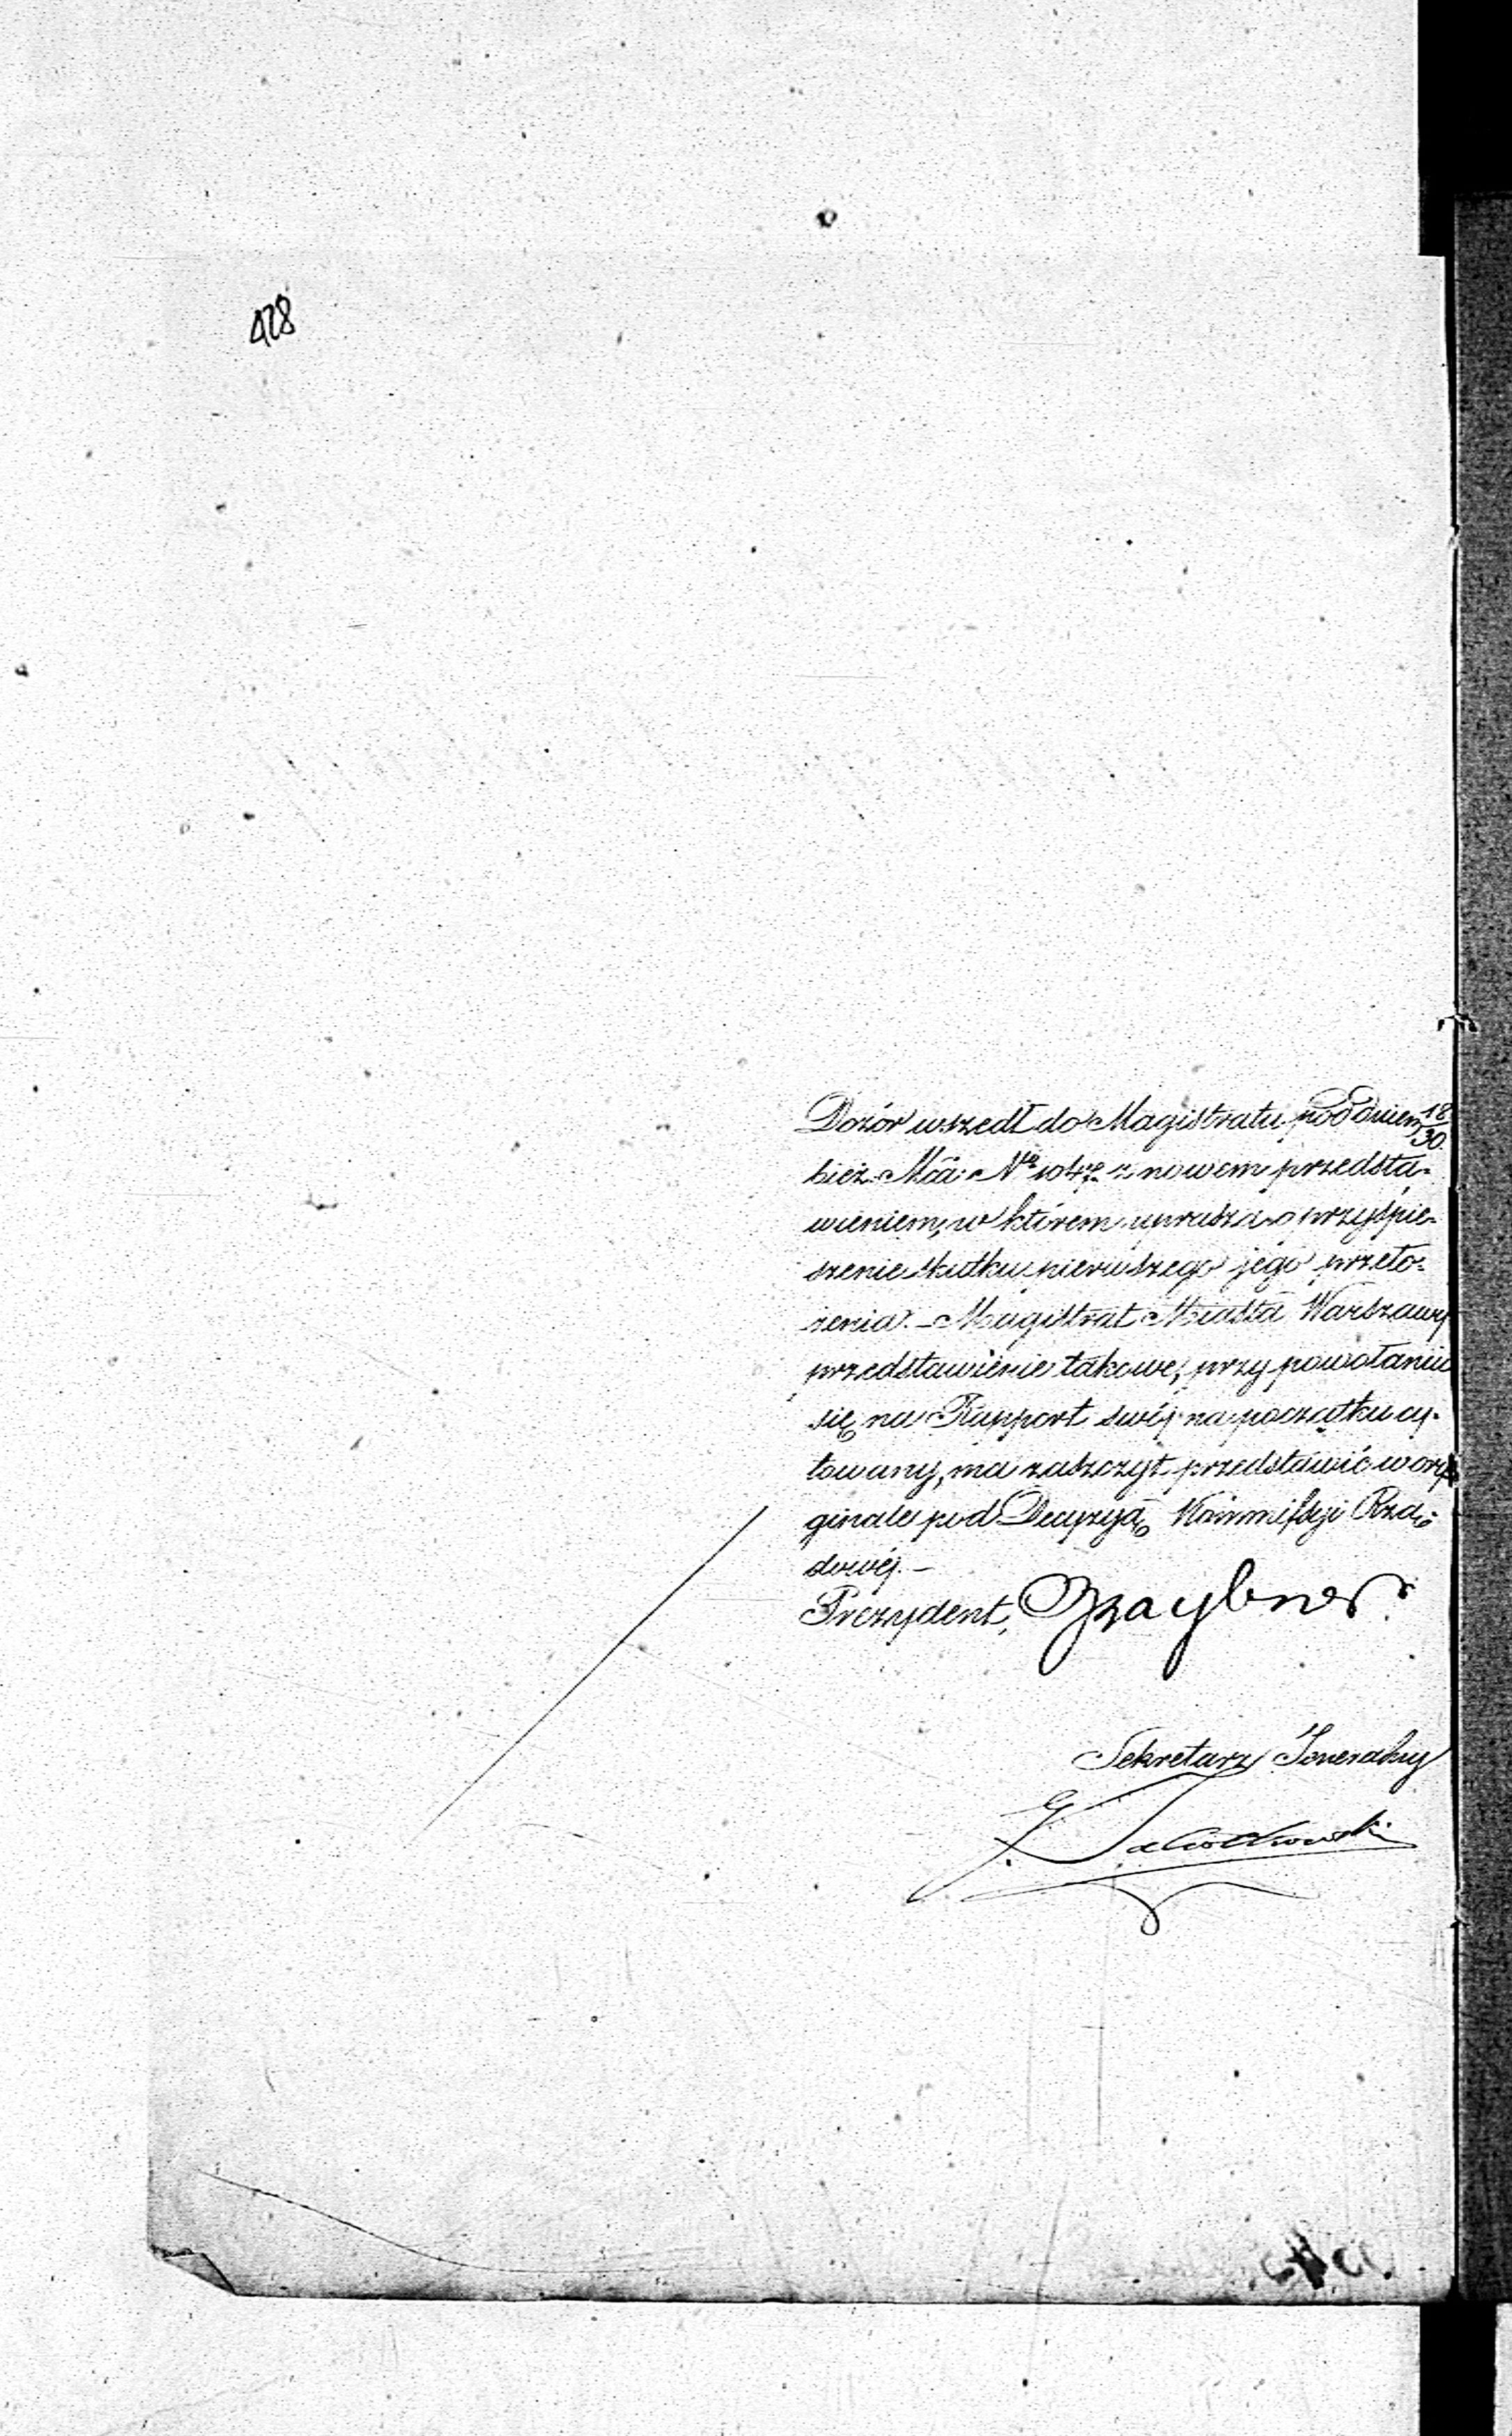 428
Dozór wszedł do Magistratu pod dniem 18/30
bież: Mca: Nº
z nowem przedsta-
wieniem, w którem uprasza o przyśpie-
szenie skutku pierwszego jego przeło-
żenia. – Magistrat Miasta Warszawy
przedstawienie takowe, przy powołaniu
się na Rapport swój na początku cy-
towany, ma zaszczyt przedstawić w ory-
ginale pod Decyzyą Kommissyi Rzą-
dowéj. –
Prezydent, Graybner
Sekretarz Jeneralny